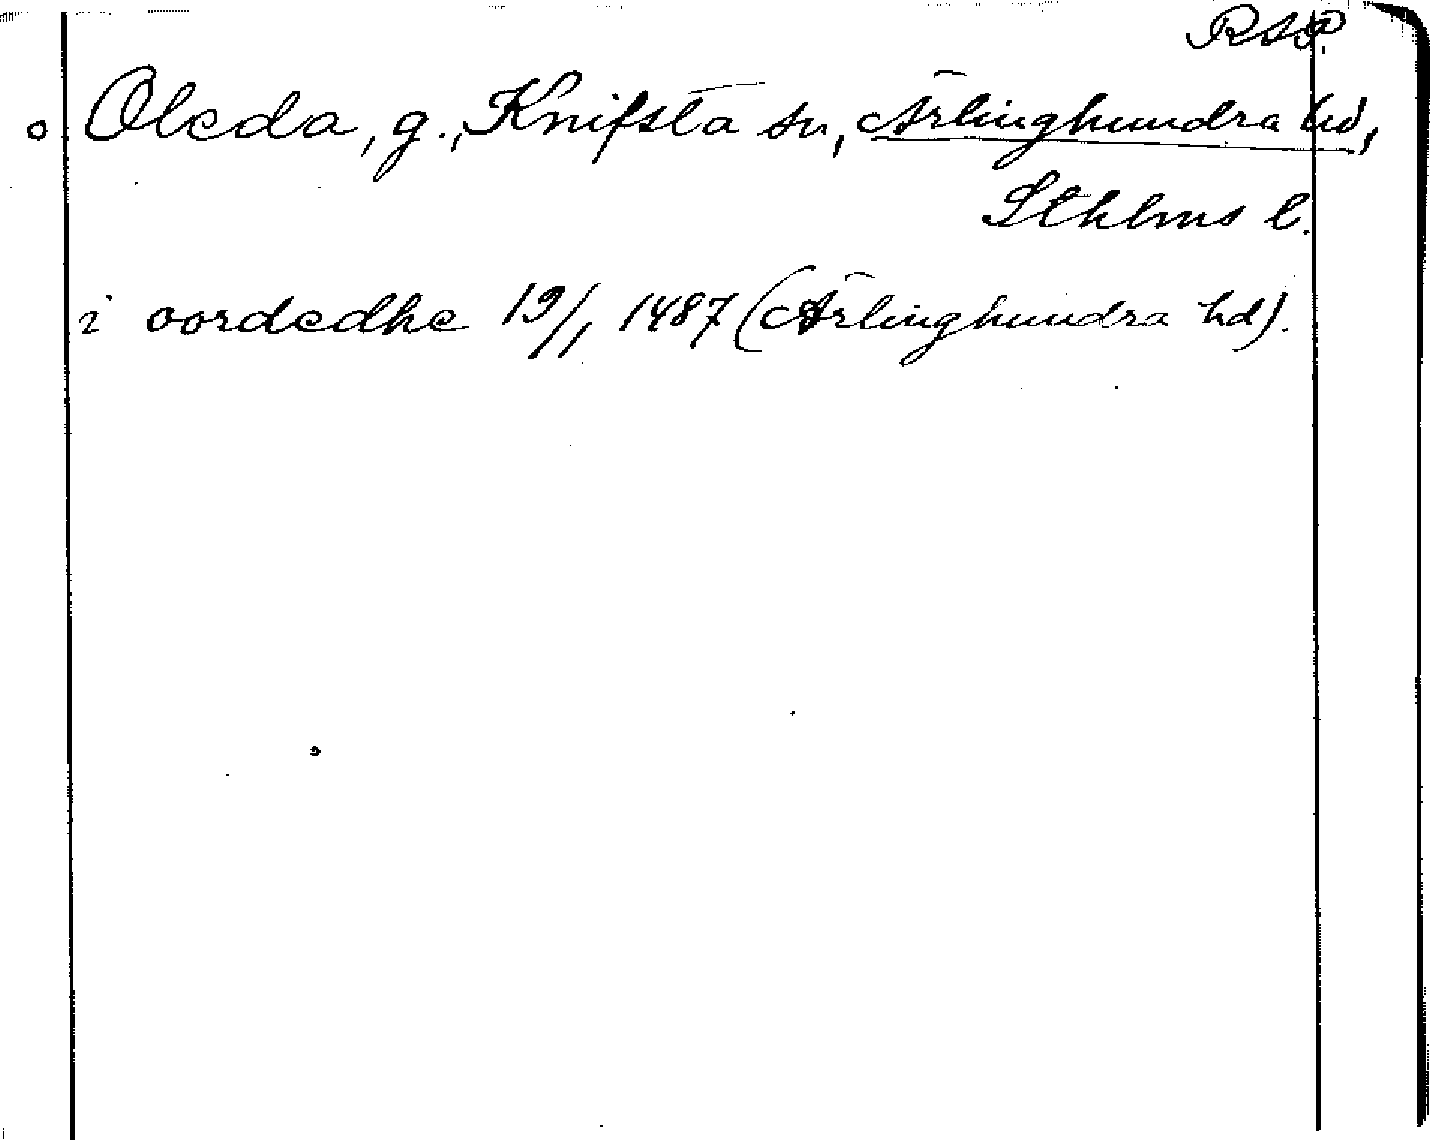 RAp.
o Oleda, g., Knifsta sn, Ärlinghundra hd,
Sthlms l.
i oordedhe 19/1 1487 (Ärlinghundra hd).